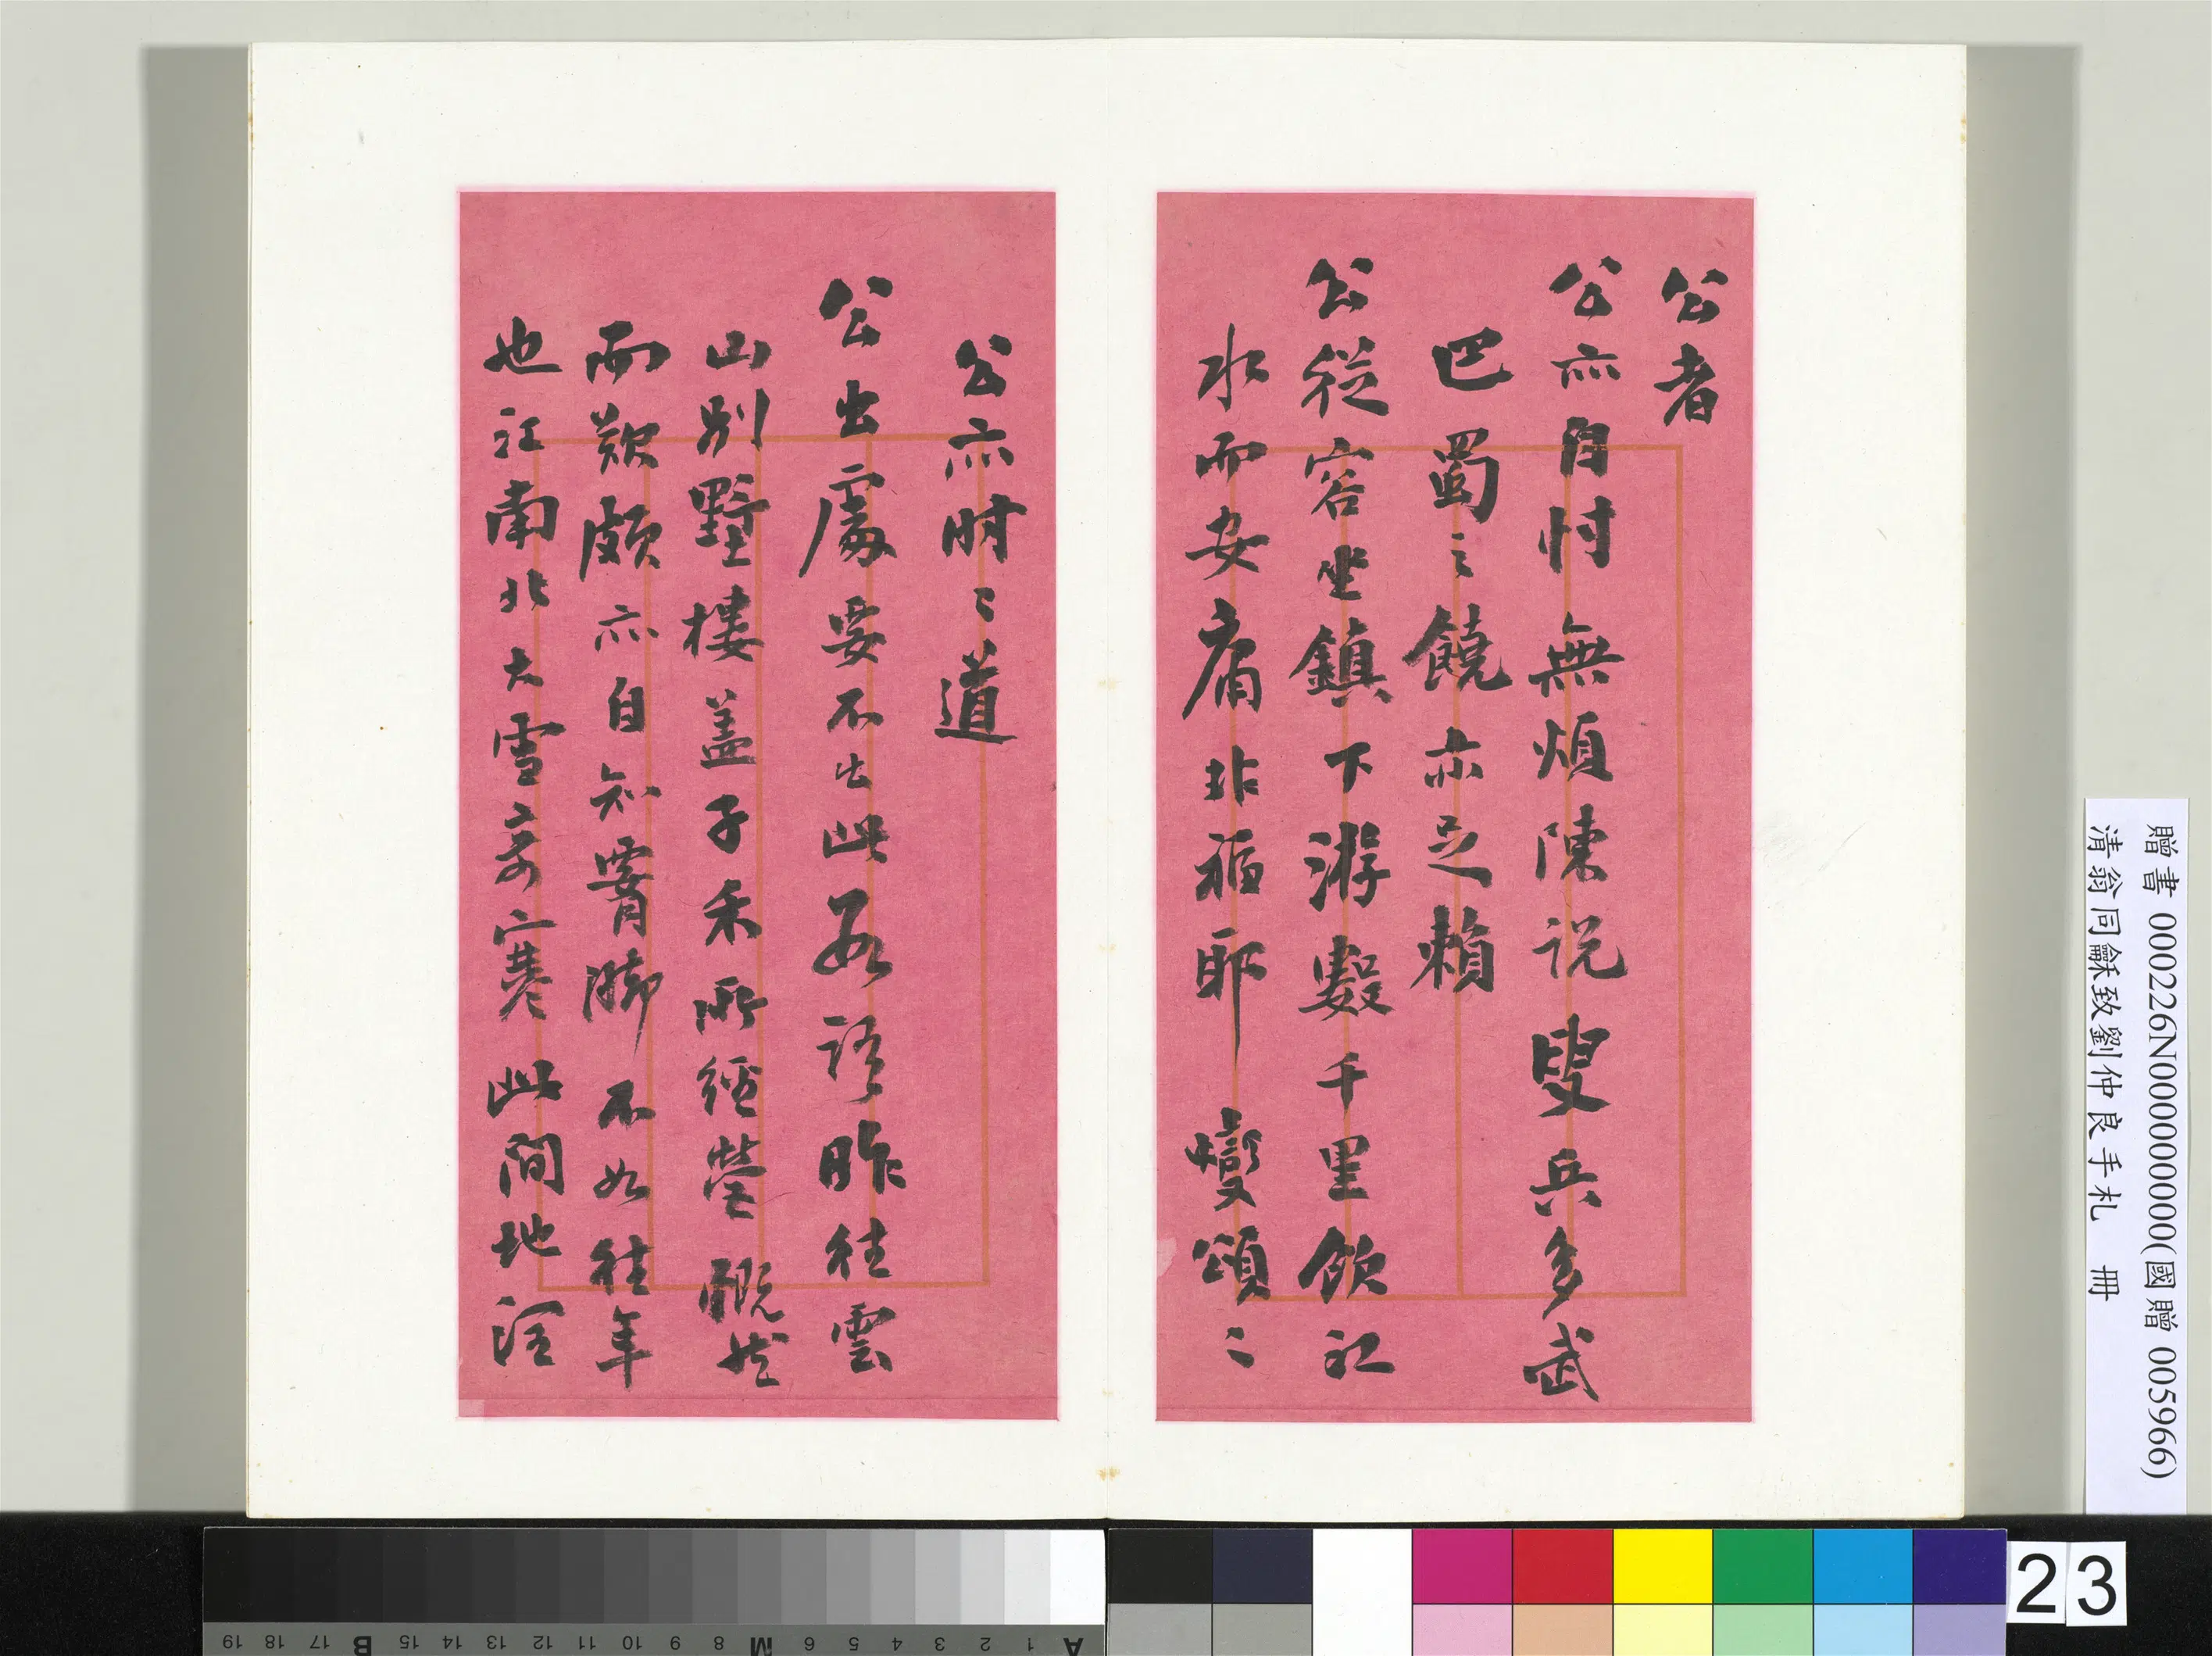 公者
公亦自忖無煩陳說叟兵多武
巴蜀之饒亦足賴
公從容坐鎮下游數千里飲江
水而安庸非福耶 頌〻
公亦時〻道
公出處要不出此語昨往雲
山別墅樓蓋子禾所經營慨然
而歎頗亦自知腰腳不如往年
也江南北大雪奇寒此間地溼
贈書 000226N000000000(國贈 005966)
清翁同龢致劉仲良手札 冊
23
A 1 2 3 4 5 6 M 8 9 10 11 12 13 14 15 B 17 18 19